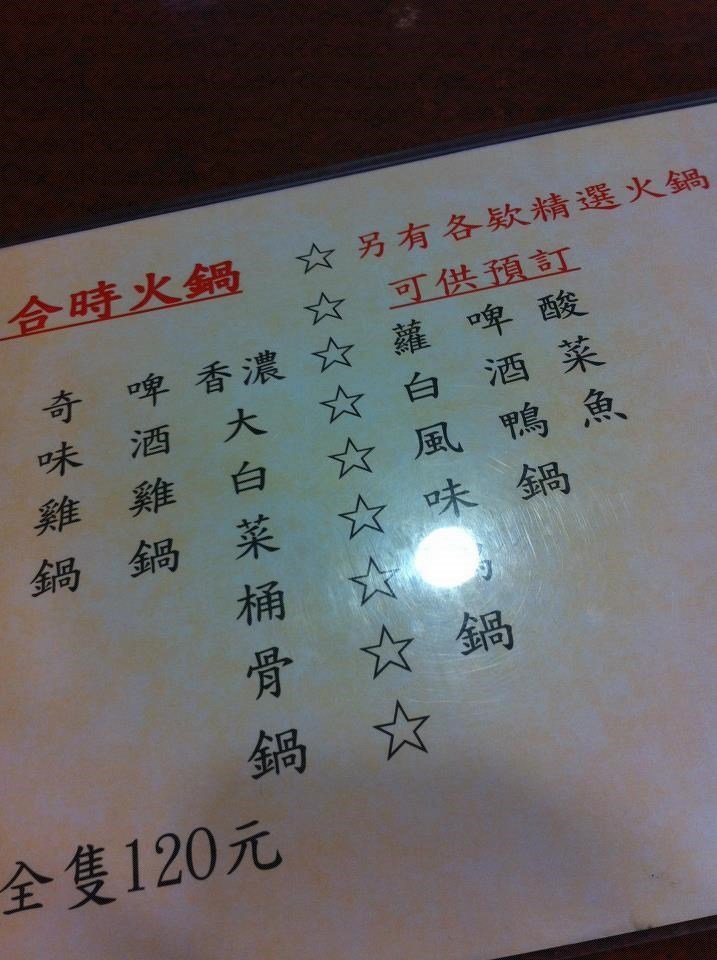 另有各欵精選火鍋
可供預訂
酸菜魚
啤酒鴨鍋
蘿白風味鍋
☆☆☆☆☆☆☆☆☆
合時火鍋
香濃大白菜桶骨鍋
啤酒雞鍋
奇味雞鍋
全隻120元